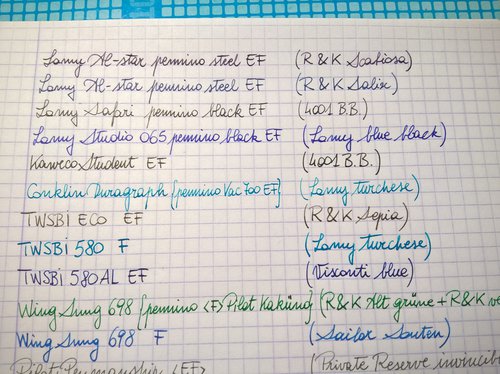 Lamy Al-star pennino steel EF (R&K Scabiosa)
Lamy Al-star pennino steel EF (R&K Salix)
Lamy Safari pennino black EF (4001 B.B.)
Lamy Studio 065 pennino black EF (Lamy blue black)
Kaweco Student EF (4001 B.B.)
Conklin Duragraph [pennino Vac 700 EF] (Lamy turchese)
TWSBI ECO EF (R&K Sepia)
TWSBI 580 F (Lamy turchese)
TWSBI 580AL EF (Visconti blue)
Wing Sung 698 [pennino <F> Pilot Kaküno] (R&K Alt grüne + R&K ve
Wing Sung 698 F (Sailor Souten)
Pilot Penmanship <EF> (Private Reserve invincib